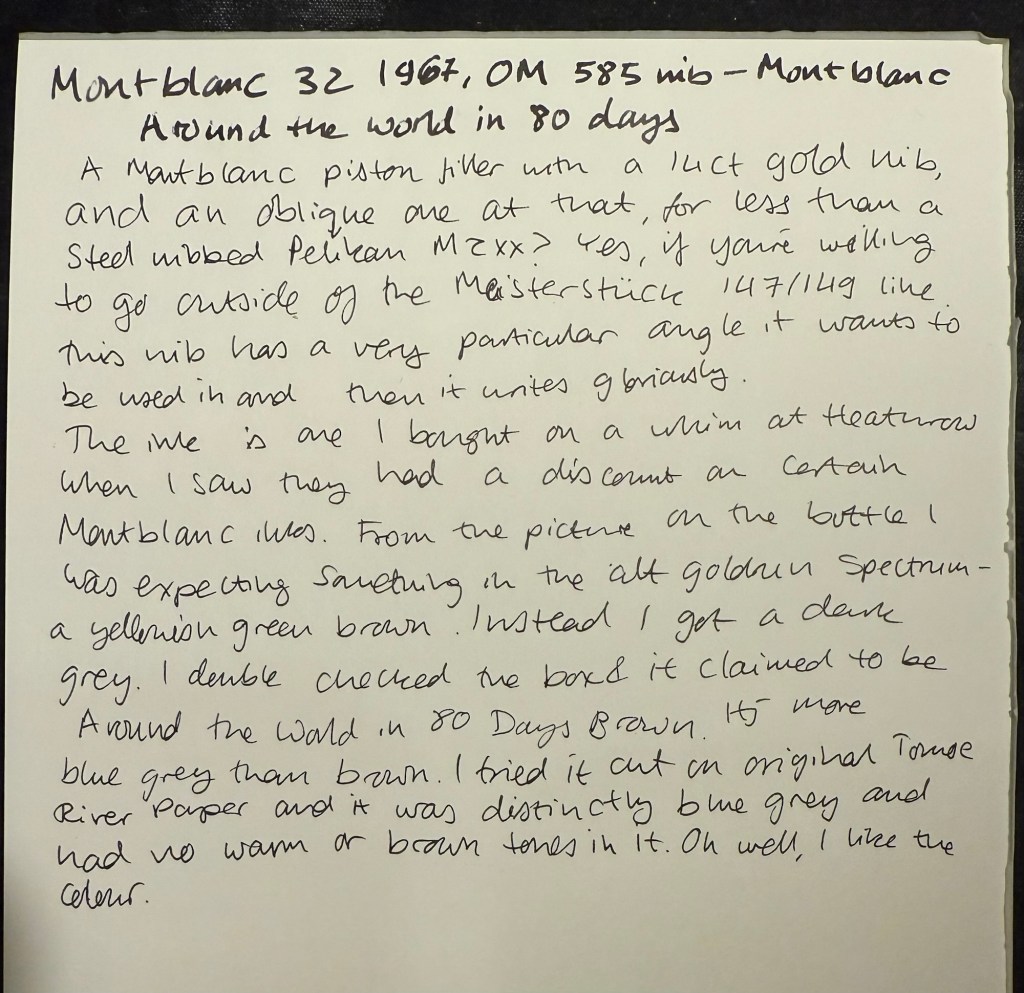 Montblanc 32 1967, OM 585 nib - Montblanc
Around the world in 80 days
A Montblanc piston filler with a 14ct gold nib,
and an oblique one at that, for less than a
Steel nibbed Pelikan M2xx? Yes, if you're willing
to go outside of the Meisterstück 147/149 line.
This nib has a very particular angle it wants to
be used in and then it writes gloriously.
The ink is one I bought on a whim at Heathrow
when I saw they had a discount on certain
Montblanc inks. From the picture on the bottle I
was expecting something in the alt goldrun spectrum -
a yellowish green brown. Instead I got a dark
grey. I double checked the box & it claimed to be
Around the World in 80 Days Brown. It's more
blue grey than brown. I tried it out on original Tomoe
River Paper and it was distinctly blue grey and
had no warm or brown tones in it. Oh well, I like the
colour.